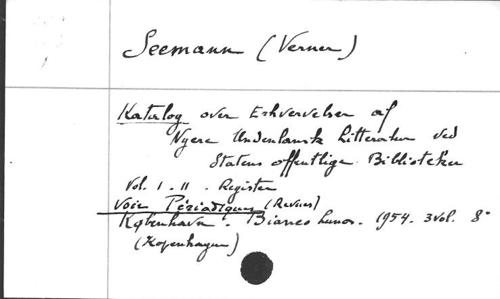 Seemann (Verner)
Katalog over Erhvervelser af
Nyere Udenlansk Litteratur ved
Statens offentlige Biblioteker
Vol. I - II - Register
Voir Périodiques (Revues)
København. Bianco Lunos. 1954. 3 vol. 8°
(Kopenhagen)